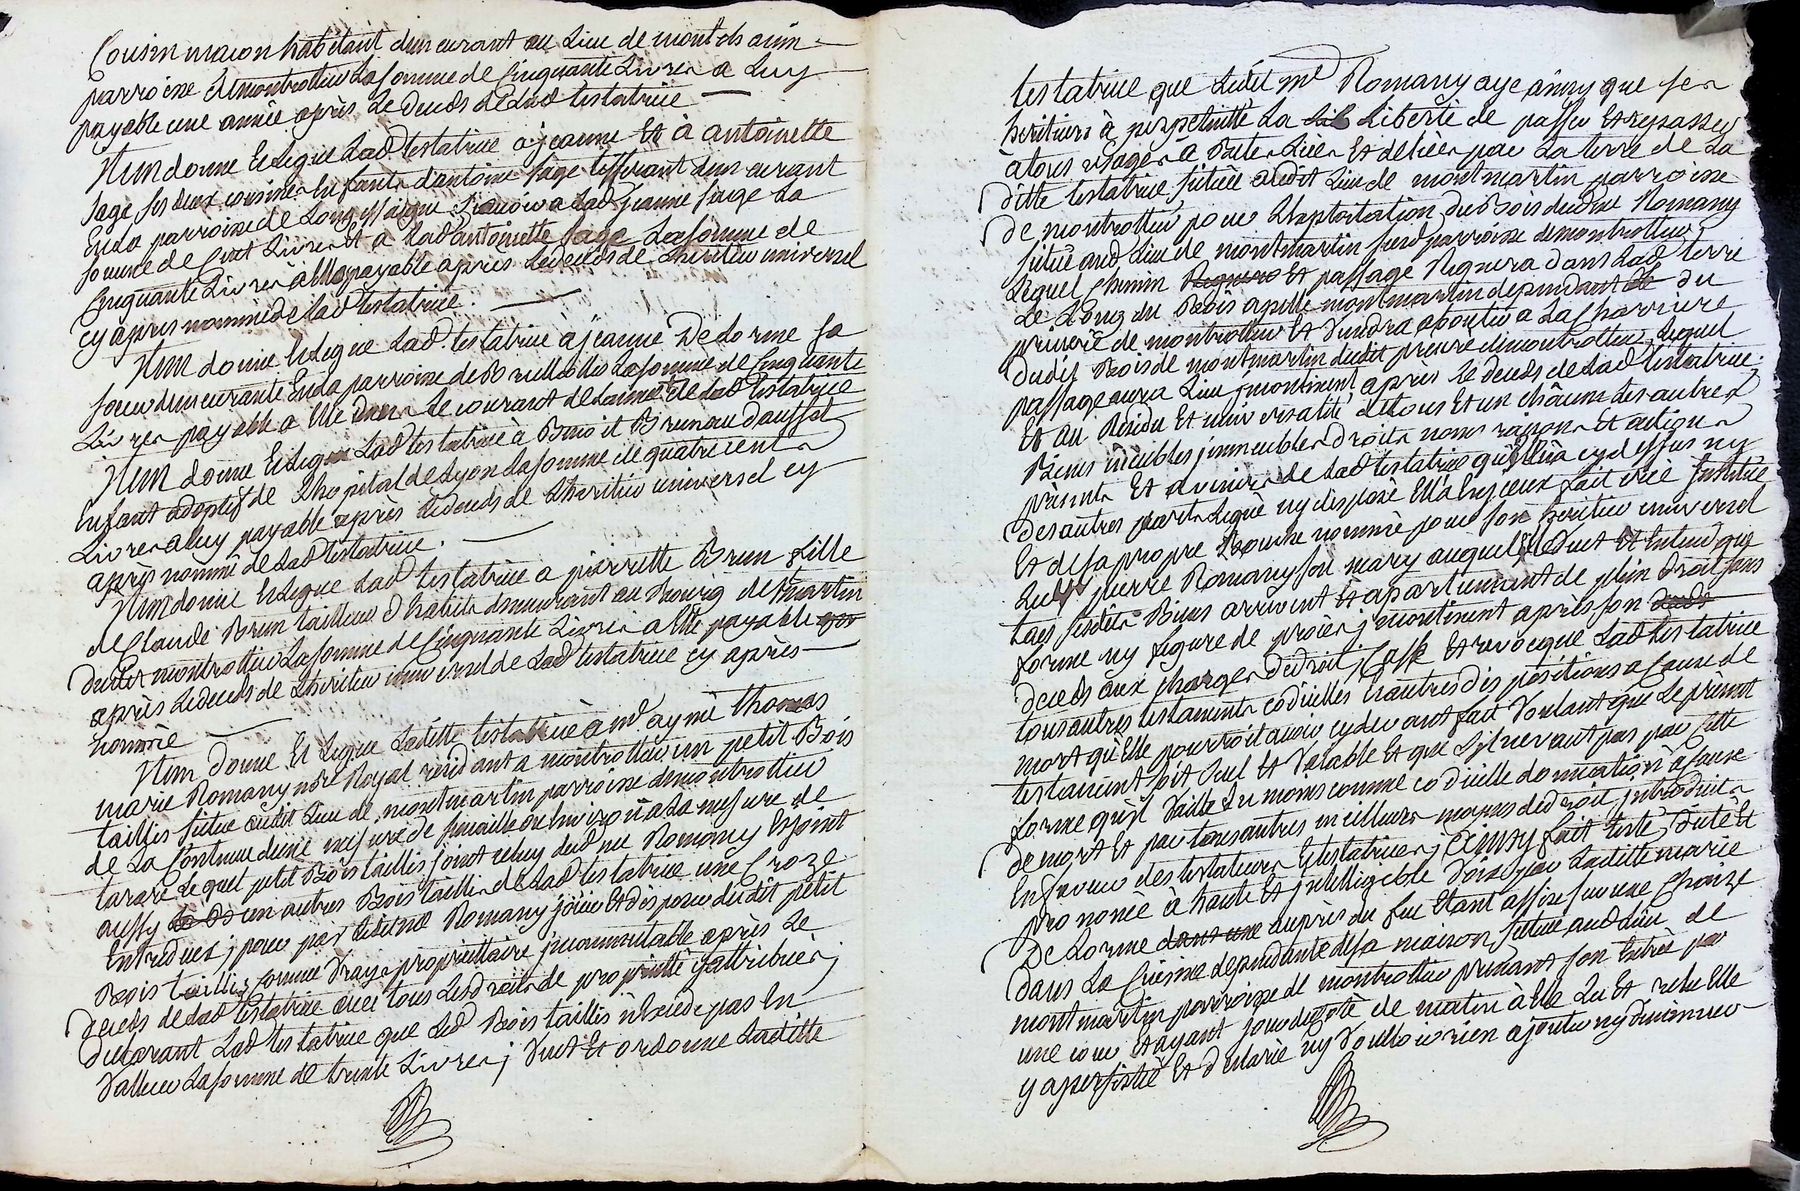 Cousin macon habitant demeurant au Lieu de mont
parroisse de montrottier La somme de Cinquante Livres a Luy
payable une année après Le deceds de Lad testatrice
Item donne et Legue Lad testatrice a jeanne Et à antoinette
sage ses deux cousines Enfants d'antoine sage demeurant
En la parroisse de Longessaigne sçavoir a Lad jeanne sage La
somme de Cent Livres Et a Lad antoinette sage La somme de
Cinquante Livres a Elles payable après Le deceds de L'heritier universel
cy après nommé de Lad testatrice.
Item donne et Legue Lad testatrice à jeanne De Lorme sa
soeur demeurante En La parroisse de Brullioles La somme de Cinquante
Livres payable a Elle dans Le courant de Lannée de Lad testatrice
Item donne et Legue Lad testatrice à Benoit Bruneau
Enfant adoptif de L'hopital de Lyon La somme de quatre cents
Livres a luy payable après Le deceds de L'heritier universel cy
après nommé de Lad testatrice.
Item donne et Legue Lad testatrice a pierrette Brun fille
de Claude Brun tailleur d'habits demeurant au Bourg de
dudit montrottier La somme de Cinquante Livres a Elle payable
après Le deceds de L'heritier universel de Lad testatrice cy après
nommé
Item donne Et Legue Laditte testatrice à me aymé thomas
marie Romany nore Royal residant a montrottier un petit Bois
taillis situé audit Lieu de montmartin parroisse de montrottier
de La Contenue d'une mesure de semaille ou environ a La mesure de
tarare Lequel petit Bois taillis joint celuy dud me Romany Et joint
aussy un autres Bois taillis de Lad testatrice une Croze
Entredeux; pour par Ledit me Romany jouir Et disposer dudit petit
Bois taillis comme vraye proprietaire incommutable après Le
deceds de Lad testatrice avec tous Les droits de proprieté y attribués;
declarant Lad testatrice que Led Bois taillis n'Excede pas En
valleur La somme de trente Livres; veut Et ordonne Laditte
testatrice que Ledit me Romany aye ainsy que ses
heritiers à perpetuitté La Liberté de passer Et repasser
à tous usages à Bates Liées Et deliées par La terre de La
ditte testatrice située audit Lieu de montmartin parroisse
de montrottier pour L'Exploitation du Bois dud me Romany
situé aud Lieu de montmartin susd parroisse de montrottier
Lequel Chemin Et passage Regnera dans Lad terre
Le Long du Bois apellé montmartin dependant du
prieuré de montrottier Et viendra aboutir a La Charriere
dudit Bois de montmartin dudit prieuré de montrottier, Lequel
passage aura Lieu incontinent après Le deceds de Lad testatrice.
Et au Residu Et universalité de tous Et un châcuns des autres
Biens meubles immeubles droits noms raisons Et actions
presents Et avenirs de Lad testatrice quElle n'a cy dessus ny
des autres parts Legué ny disposé Elle a En iceux fait créé Institué
Et de sa propre Bouche nommé pour son heritier universel
pierre Romany son mary auquel Elle veut Et Entend que
Les susdits Biens arrivent Et apartiennent de plein droit sans
forme ny figure de procès incontinent après son
deceds aux charges de droit; Casse Et revocque Lad testatrice
tous autres testaments codicilles Et autres dispositions a Cause de
mort qu'Elle pourroit avoir cy devant fait Voulant que Le présent
testament soit seul Et Valable Et que S'il ne vaut pas par cette
forme qu'il vaille du moins comme codicille donnation à Cause
de mort Et par tous autres meilleurs moyens de droit introduits
En faveur des testateurs Et testatrices; Ainsy fait testé, dicté Et
prononcé à haute Et intelligible voix par Laditte marie
De Lorme dans une auprès du feu Etant assise sur une Chaize
dans La Cuisine dependante de sa maison située aud Lieu de
montmartin parroisse de montrottier prenant son Entrée par
une cour Et ayant jour du coté de matin à Elle Lu Et relu Elle
y a persisté Et declaré ny vouloir rien ajouter ny diminuer